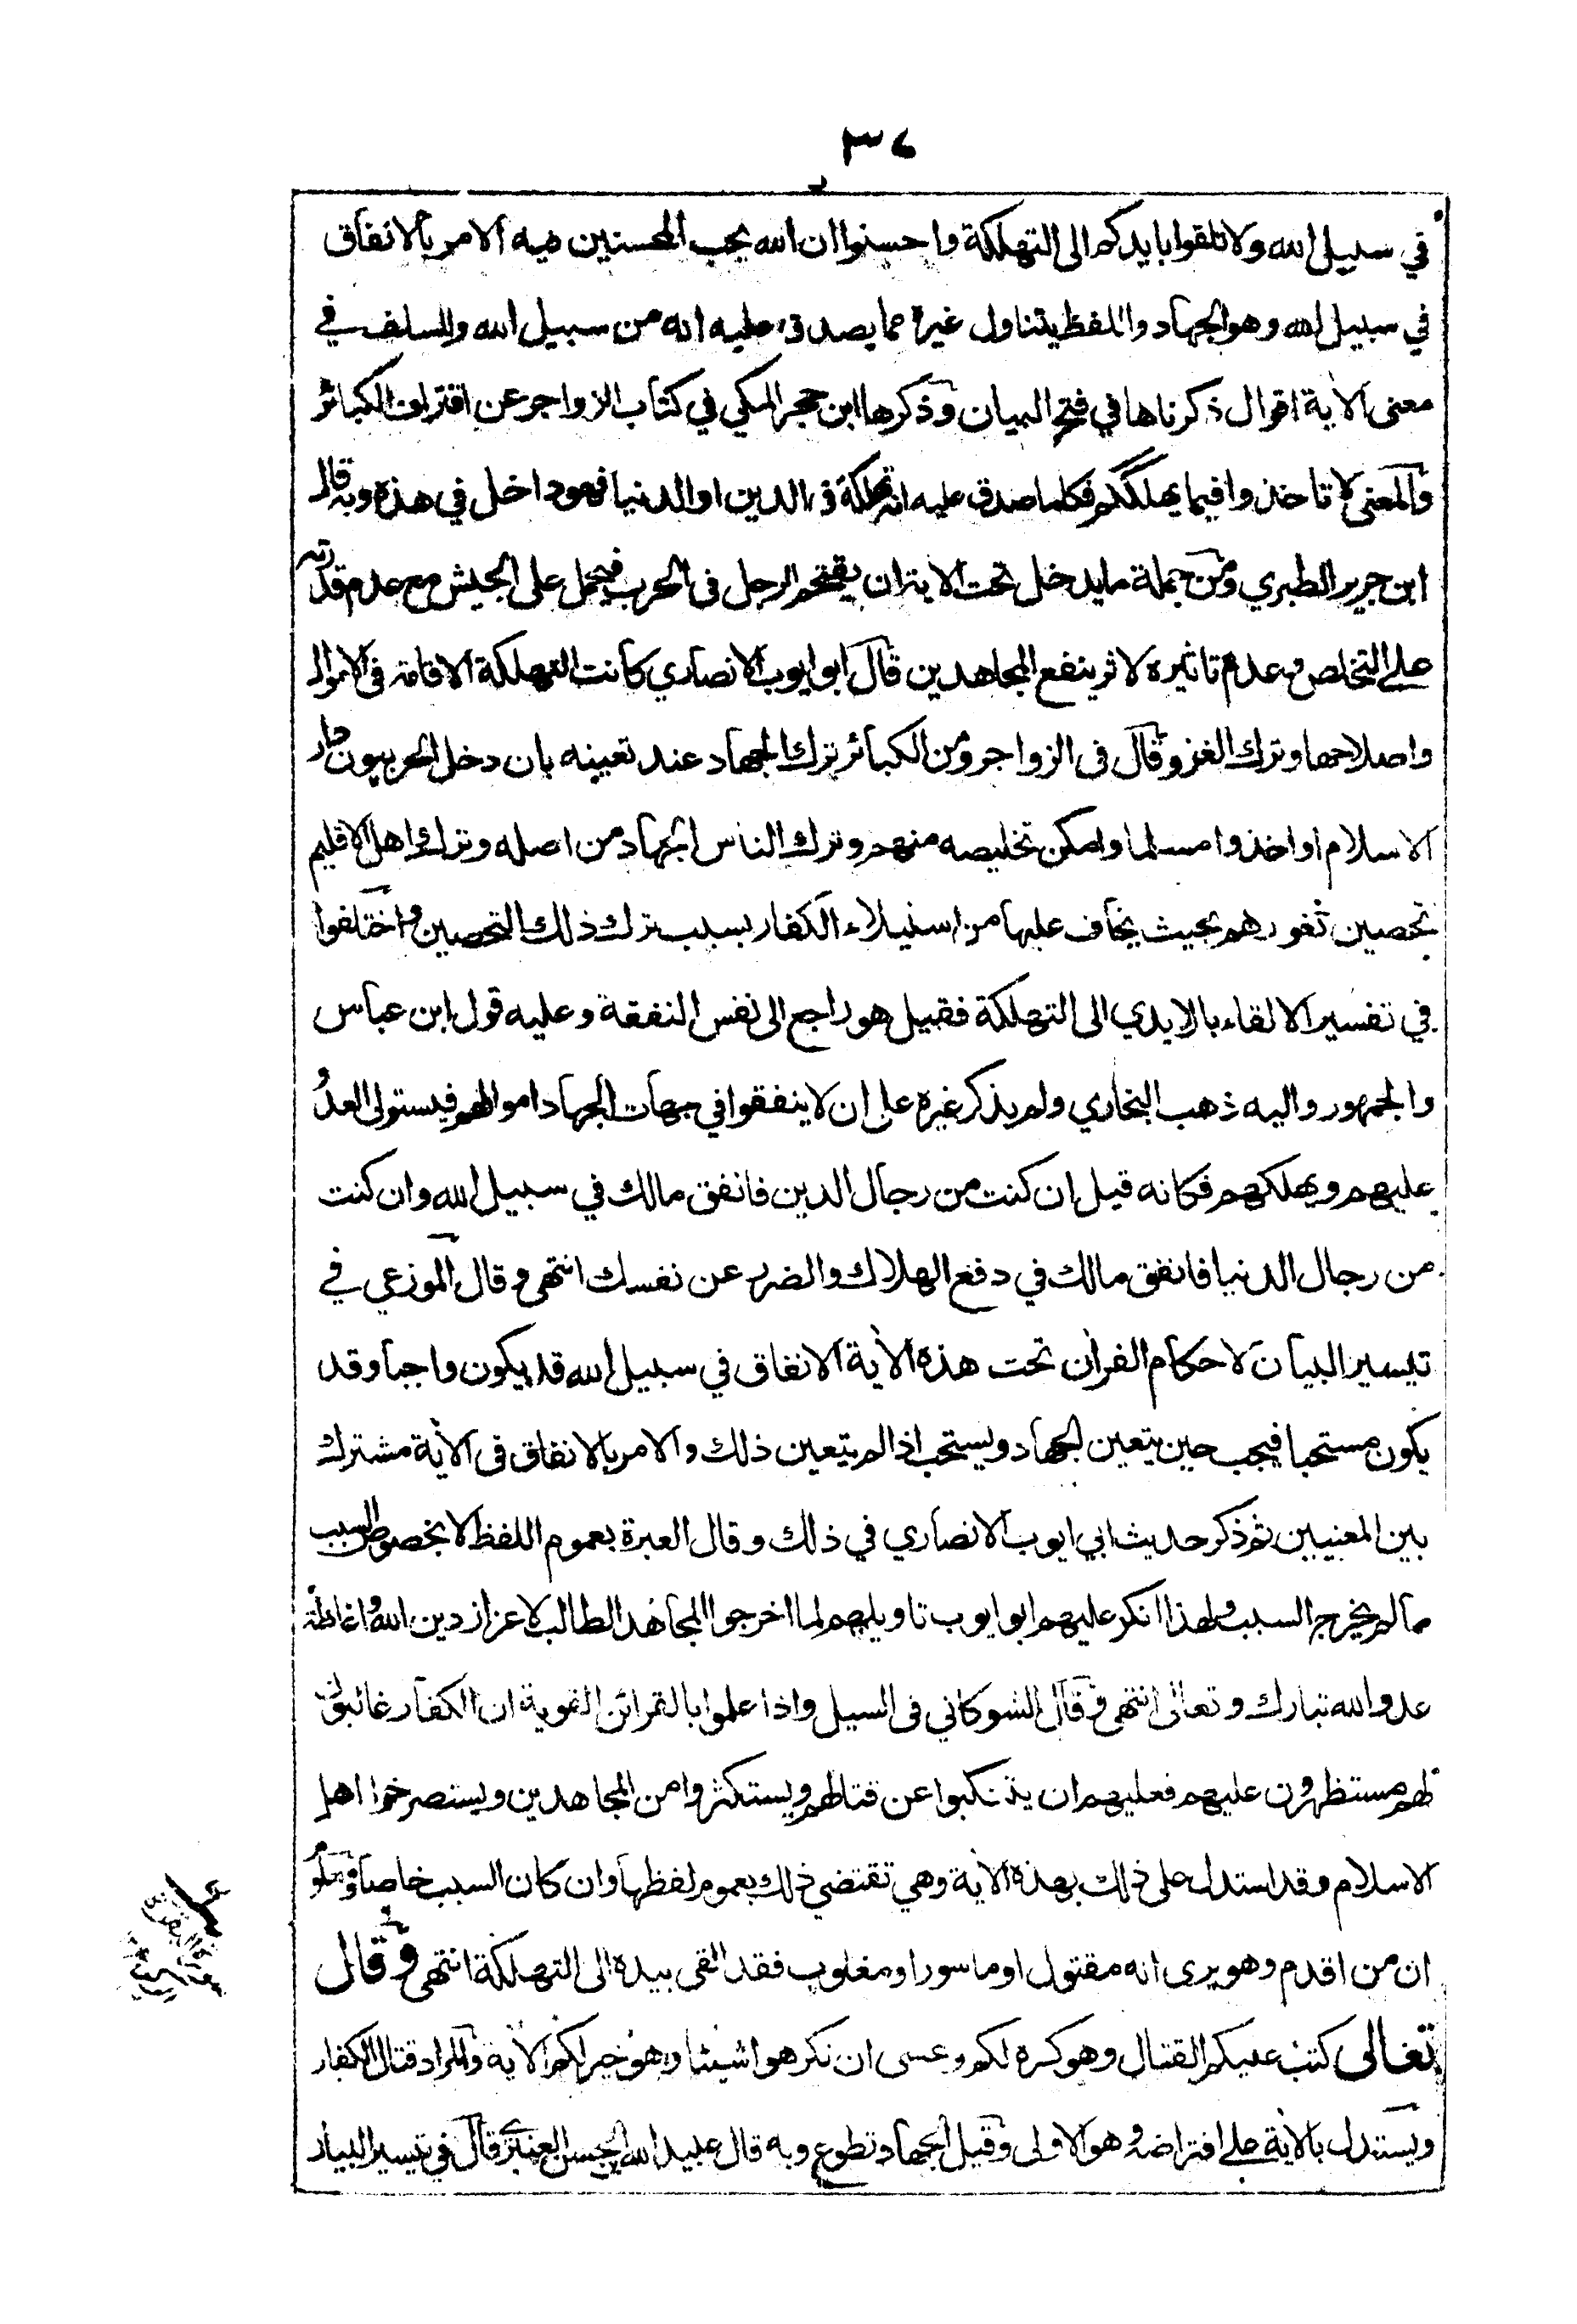 ٣٧
في سبيل الله ولا تلقوا بايديكم الى التهلكة واحسنوا ان الله يحب المحسنين فيه الامر بالانفاق
في سبيل الله وهو الجهاد واللفظ يتناول غيرة مما يصدق عليه انه من سبيل الله وللسلف في
معنى الاية اقوال ذكرناها في فتح البيان وذكرها ابن حجر المكي في كتاب الزواجر عن اقتراف الكبائر
والمعنى لا تاخذوا فيما يهلككم فكلما صدق عليه انه تهلكة فى الدين او الدنيا فهو داخل في هذه وبه قال
ابن جرير الطبري ومن جملة ما يدخل تحت الاية ان يقتحم الرجل فى الحرب فيحمل على الجيش مع عدم قدرته
على التخلص وعدم تاثيره لاثر ينفع المجاهدين قال ابو ايوب الانصاري كانت التهلكة الاقامة فى الاموال
واصلاحها وترك الغزو وقال فى الزواجر ومن الكبائر ترك الجهاد عند تعينه بان دخل الحربيون دار
الاسلام او اخذوا مسلما وامكن تخليصه منهم وترك الناس الجهاد من اصله وترك اهل الاقليم
تحصين ثغورهم بحيث يخاف عليها من استيلاء الكفار بسبب ترك ذلك التحصين واختلفوا
في تفسير الالقاء بالايدي الى التهلكة فقيل هو راجع الى نفس النفقة وعليه قول ابن عباس
والجمهور واليه ذهب البخاري ولم يذكر غيرة على ان لا ينفقوا في جهات الجهاد اموالهم فيستولى العدو
عليهم ويهلكهم فكانه قيل ان كنت من رجال الدين فانفق مالك في سبيل الله وان كنت
من رجال الدنيا فانفق مالك في دفع الهلاك والضرر عن نفسك انتهى وقال الموزعي في
تيسير البيان لاحكام القران تحت هذه الاية الانفاق في سبيل الله قد يكون واجبا وقد
يكون مستحبا فيجب حين يتعين الجهاد ويستحب اذا لم يتعين ذلك والامر بالانفاق في الاية مشترك
بين المعنيين ثم ذكر حديث ابي ايوب الانصاري في ذلك وقال العبرة بعموم اللفظ لا بخصوص السبب
ما لم يخرج السبب ولهذا انكر عليهم ابو ايوب تاويلهم لما اخرجوا المجاهد الطالب لاعزاز دين الله واغاظة
عدو الله تبارك وتعالى انتهى وقال الشوكاني فى السيل واذا علموا بالقرائن القوية ان الكفار غالبون
لهم مستظهرون عليهم فعليهم ان يتنكبوا عن قتالهم ويستكثروا من المجاهدين ويستصرخوا اهل
الاسلام وقد استدل على ذلك بهذه الاية وهي تقتضي ذلك بعموم لفظها وان كان السبب خاصا ومعلوم
ان من اقدم وهو يرى انه مقتول او ماسور او مغلوب فقد القى بيده الى التهلكة انتهى وقال
تعالى كتب عليكم القتال وهو كره لكم وعسى ان تكرهوا شيئا وهو خير لكم الاية والمراد قتال الكفار
ويستدل بالاية على افتراضه وهو الاولى وقيل الجهاد تطوع وبه قال عبيد الله بن الحسن العنبري قال في تيسير البيان